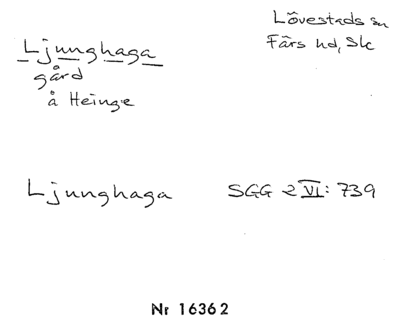 Ljunghaga
gård
å Heinge
Lövestads sn
Färs hd, Sk
Ljunghaga SGG 2 VI: 739
Nr 16362